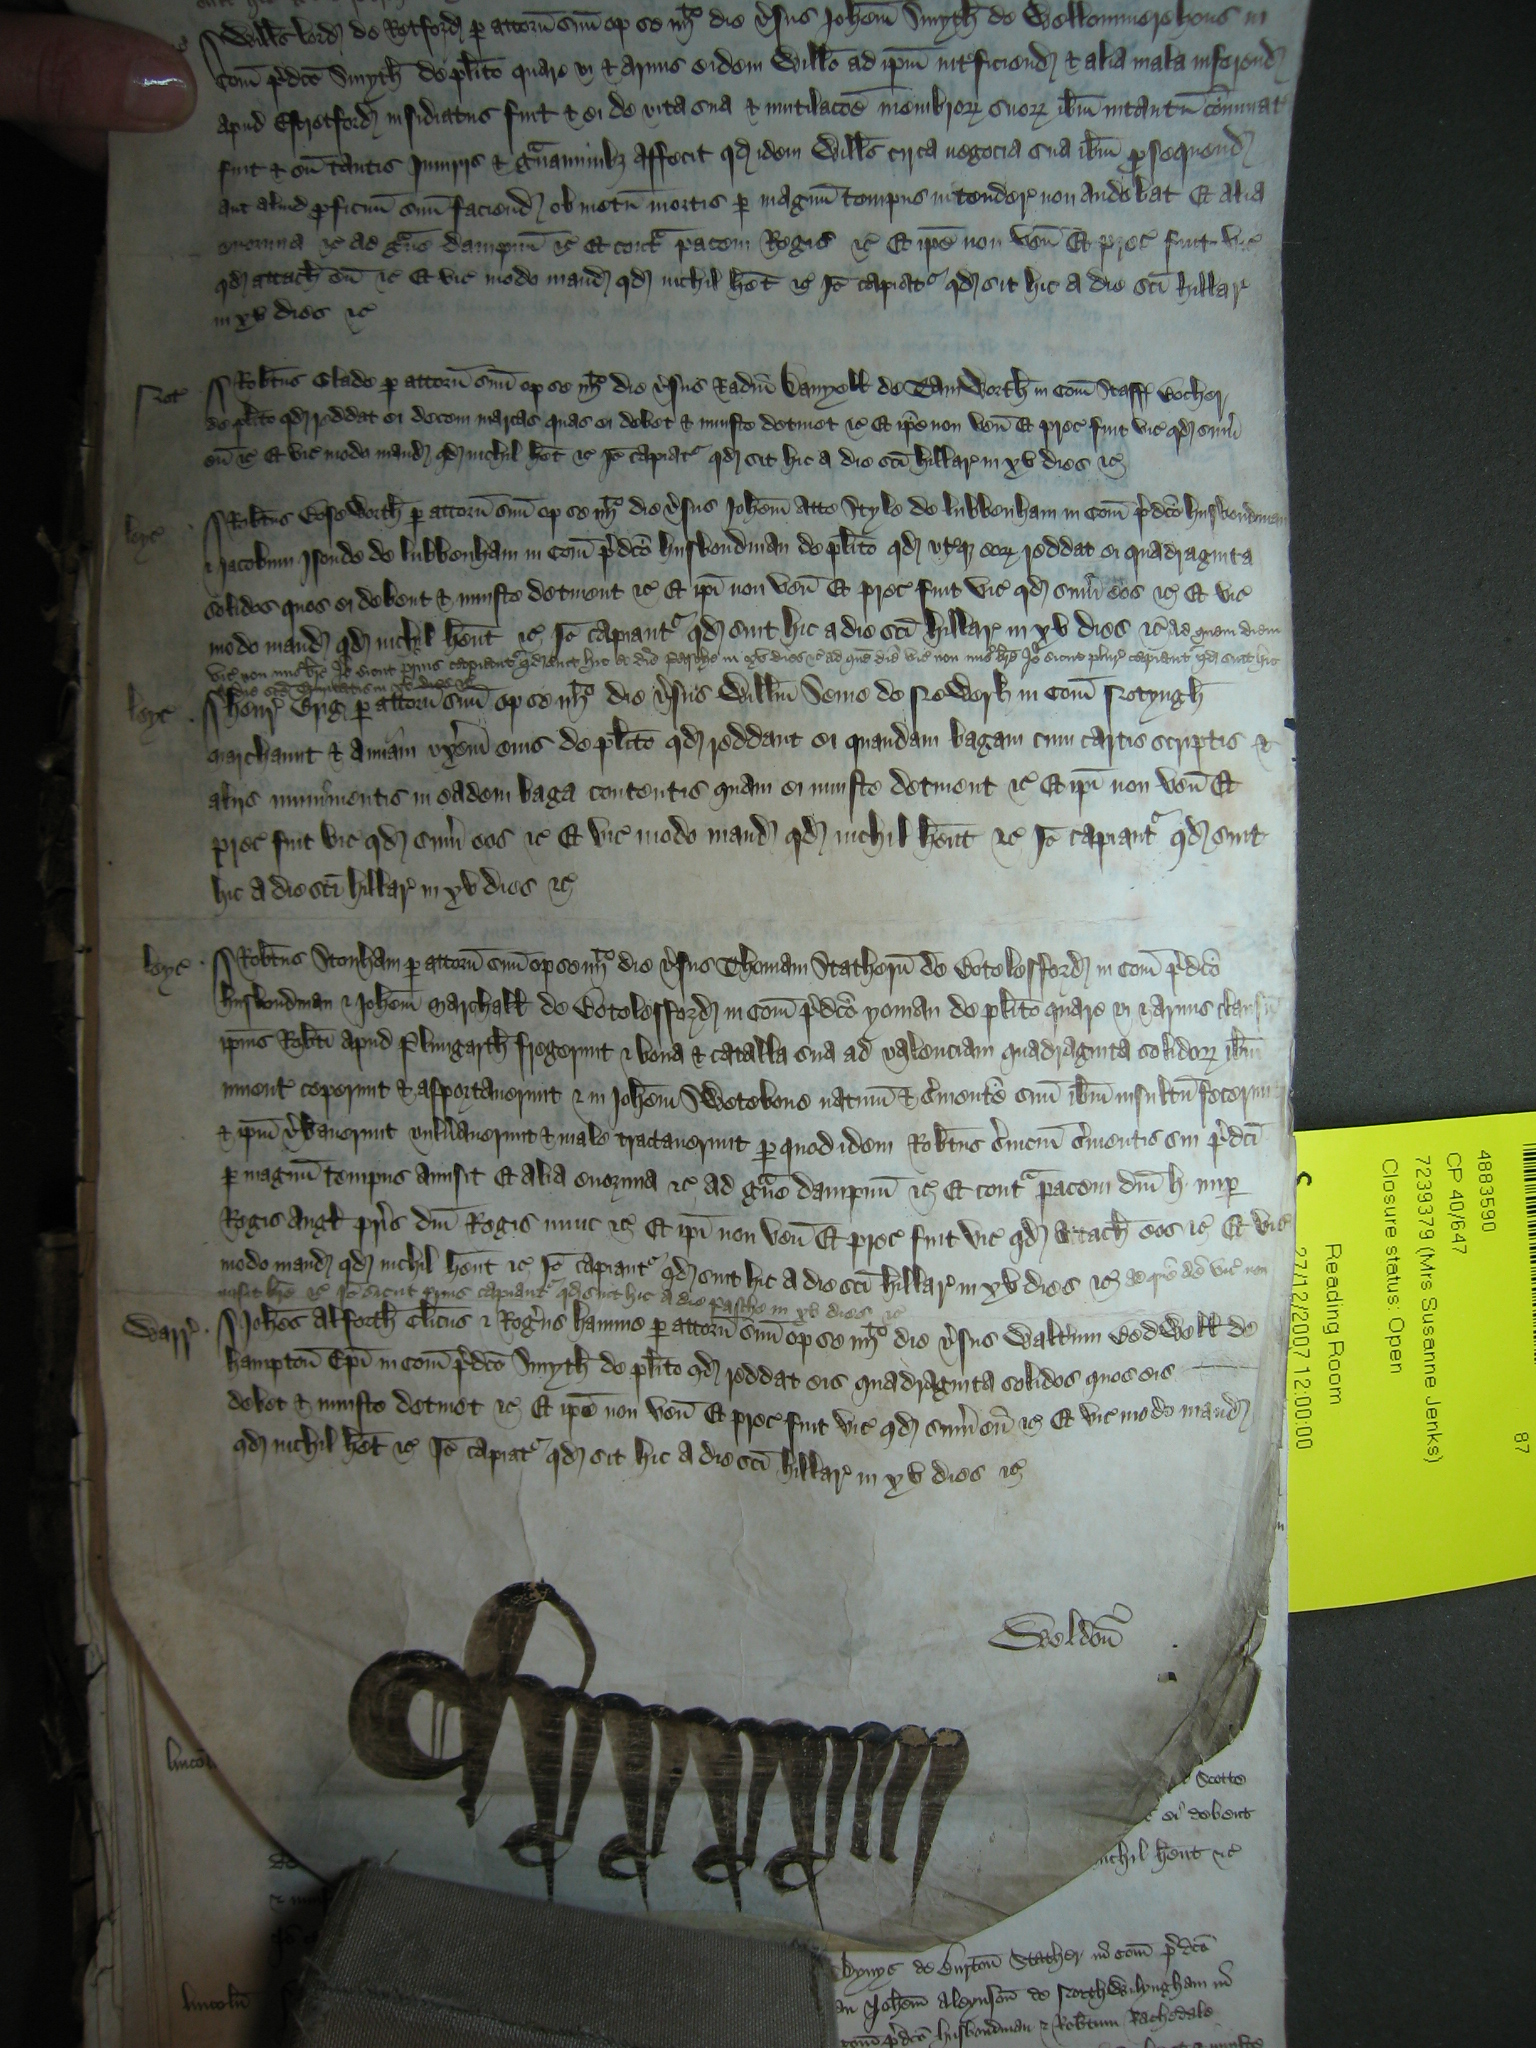 Willƺ lord de Retford p attorn suũ op se iiijto die vsus Johem Smyth de Wellommerehous in
Com pdco Smyth de plito quare vi & armis eidem Willo ad ipm intficiend & alia mala inferend
apud Estretford insidiatus fuit & ei de vita sua & mutilacoe membrorz suorz ibm intantu cominat
fuit & eu tantis Iniuriis & gravaminibz affecit qd idem Wills circa negocia sua ibm prosequend
aut aliud proficuu suu faciend ob metu mortis p magnu tempus intender non audebat Et alia
enormia &c ad gve dampnu &c Et contr pacem Regis &c Et ipe non ven Et prec fuit vic
qd attach eu &c Et vic modo mand qd nichil het &c Io capiatr qd sit hic a die sci hillar
in xv dies &c
Not
Robtus Glade p attorn suu op se iiijto die vsus Radm Danyell de Tamworth in Com Staff Bocher
de plito qd reddat ei decem marcas quas ei debet & iniuste detinet &c Et ipe non ven Et prec fuit vic qd sum
eu &c Et vic modo mand qd nichil het &c Io capiatr qd sit hic a die sci hillar in xv dies &c
leyc
Robtus Boseworth p attorn suu op se iiijto die vsus Johem Atte Style de lubbenham in Com pdco husbondman
& Jacobum Isende de lubbenham in Com pdco husbondman de plito qd utqz eorz reddat ei quadraginta
solidos quos ei debent & iniuste detinent &c Et ipi non ven Et prec fuit vic qd sum eos &c Et vic
modo mand qd nichil hent &c Io capiantr qd sint hic a die sci hillar in xv dies &c ad quem diem
vic non mis bre Io sicut prius capiantr qd sint hic a die Pasche in xv dies &c ad que die vic non mis bre Io sicut plur capiantr qd sint hic
a die sce Trinitatis in xv dies &c
leyc
Henr Grig p attorn suu op se iiijto die vsus Willm Seme de Newerk in Com Notyngh
marchaunt & Amiam uxem eius de plito qd reddant ei quandam bagam cum cartis scriptis &
aliis munimentis in eadem baga contentis quam ei iniuste detinent &c Et ipi non ven Et
prec fuit vic qd sum eos &c Et vic modo mand qd nichil hent &c Io capiantr qd sint
hic a die sci hillar in xv dies &c
leyc
Robtus Stonham p attorn suu op se iiijto die vsus Thomam Stathern de Botelesford in Com pdco
husbondman & Johem Marchall de Botelesford in Com pdco yoman de plito quare vi & armis clausu
ipius Robti apud Plungarth fregerunt & bona & catalla sua ad valenciam quadraginta solidorz ibm
invent ceperunt & asportaverunt & in Johem Swetebone natiuu & svientem suu ibm insultu fecerunt
& ipm vbaverunt vulnaverunt & male tractaverunt p quod idem Robtus sviciu svientis sui pdci
p magnu tempus amisit Et alia enormia &c ad gve dampnu &c Et contr pacem dni H nup
Regis Angl pris dni Regis nunc &c Et ipi non ven Et prec fuit vic qd attach eos &c Et vic
modo mand qd nichil hent &c Io capiantr qd sint hic a die sci hillar in xv dies &c ad que die vic non
misit bre &c Io sicut prius capiantr qd sint hic a die Pasche in xv dies &c
Warr
Johes Alforth clicus & Rogus hamme p attorn suu op se iiijto die vsus Waltum Bedwell de
hampton Epi in Com pdco Smyth de plito qd reddat eis quadraginta solidos quos eis
debet & iniuste detinet &c Et ipe non ven Et prec fuit vic qd sum eu &c Et vic modo mand
qd nichil het &c Io capiatr qd sit hic a die sci hillar in xv dies &c
Weldon
lincoln
Scotte
ei debent
nichil hent &c
lincoln
de burton Stather in com pdco
Johem Aleynson de Northwilyngham in
com pdco husbondman & Robtum Rachedale
4883590
87
CP 40/647
7239379 (Mrs Susanne Jenks)
Closure status: Open
Reading Room
27/12/2007 12:00:00